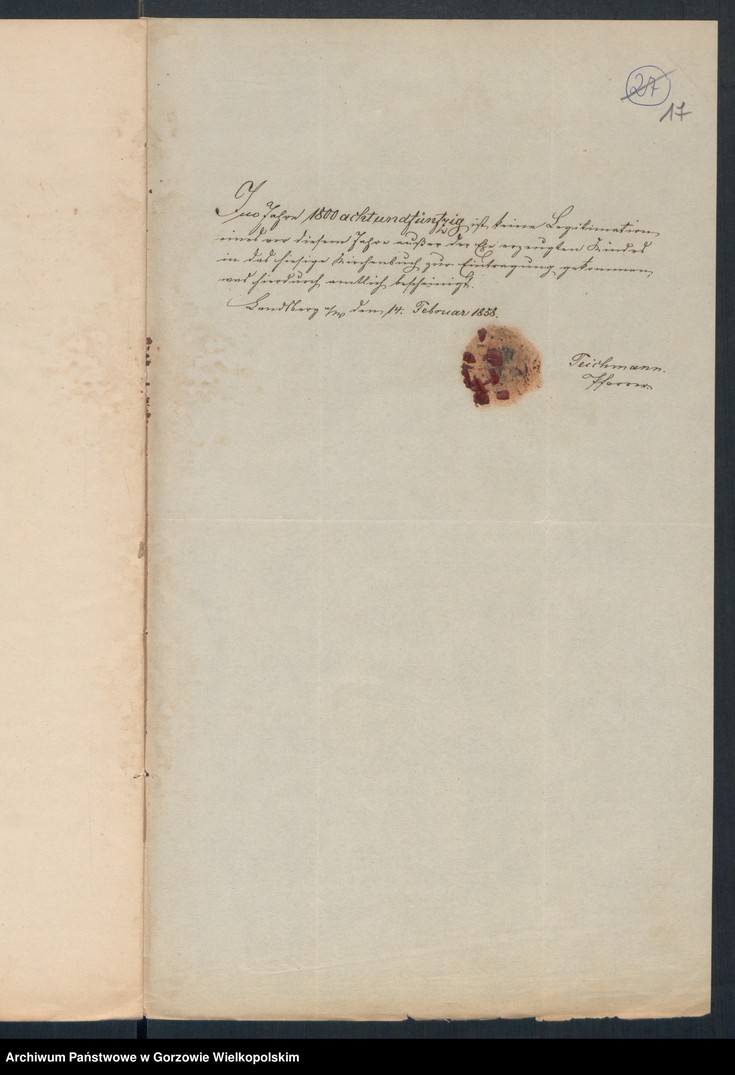 27
17
Im Jahre 1800 achtundfünfzig ist keine Legitimation
eines vor diesem Jahre außer der Ehe erzeugten Kindes
in das hiesige Kirchenbuch zur Eintragung gekommen,
was hierdurch amtlich bescheinigt.
Landsberg a/W den 14. Februar 1858.
Teichmann.
Pfarrer.
Archiwum Państwowe w Gorzowie Wielkopolskim